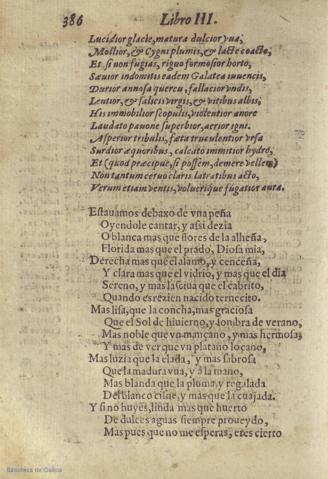 386 Libro III.
Lucidior glacie, matura dulcior vua,
Mollior, & Cygni plumis, & lacte coacto,
Et si non fugias, riguo formosior horto,
Sæuior indomitis eadem Galatea iuuencis,
Durior annosa quercu, fallacior vndis,
Lentior, & salicis virgis, & vitibus albis,
His immobilior scopulis, violentior amne
Laudato pauone superbior, acrior igni.
Asperior tribulis, fæta truculentior vrsa
Surdior æquoribus, calcato immitior hydro,
Et (quod præcipuè, si possem, demere vellem)
Non tantum ceruo claris latratibus acto,
Verum etiam ventis, volucrique fugatior aura.
Estauamos debaxo de vna peña
Oyendole cantar, y assi dezia
O blanca mas que flores de la alheña,
Florida mas que el prado, Diosa mia,
Derecha mas que el alamo, y cenceña,
Y clara mas que el vidrio, y mas que el dia
Sereno, y mas lasciua que el cabrito,
Quando es rezien nacido ternecito.
Mas lisa, que la concha, mas graciosa
Que el Sol de hiuierno, y sombra de verano,
Mas noble que vn mançano, y mas hermosa,
Y mas de ver que vn platano loçano,
Mas luzia que la elada, y mas sabrosa
Que la madura vua, y à la mano,
Mas blanda que la pluma, y regalada
Del blanco cisne, y mas que la cuajada.
Y si no huyes, linda mas que huerto
De dulces aguas siempre proueydo,
Mas pues que no me esperas, eres cierto
Biblioteca de Galicia